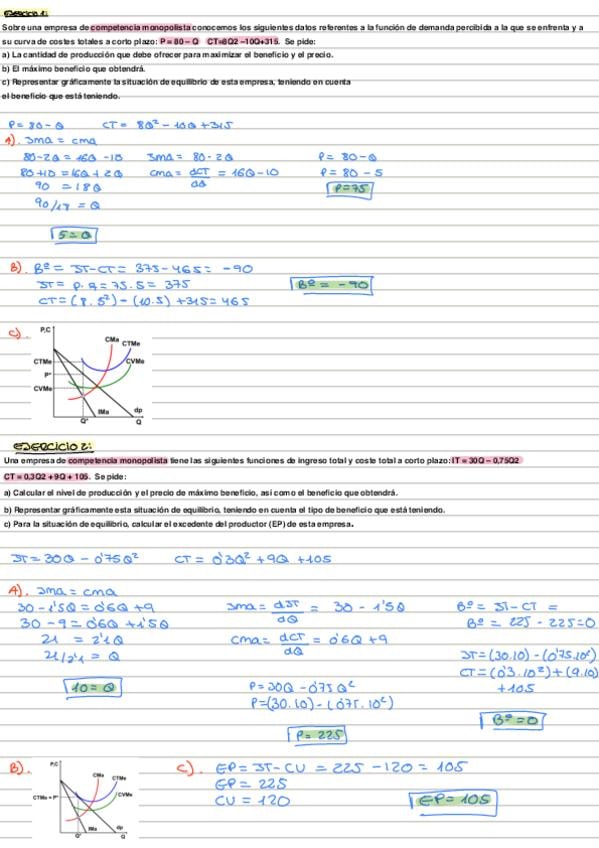 Ejercicio 1:
Sobre una empresa de competencia monopolista conocemos los siguientes datos referentes a la función de demanda percibida a la que se enfrenta y a
su curva de costes totales a corto plazo: P = 80 – Q CT=8Q2 –10Q+315. Se pide:
a) La cantidad de producción que debe ofrecer para maximizar el beneficio y el precio.
b) El máximo beneficio que obtendrá.
c) Representar gráficamente la situación de equilibrio de esta empresa, teniendo en cuenta
el beneficio que está teniendo.
P = 80 - Q CT = 8Q² - 10Q + 315
A). Ima = cma
80-2Q = 16Q -10 Ima = 80 - 2Q P = 80-Q
80+10 = 16Q + 2Q cma = dCT/dQ = 16Q-10 P = 80 - 5
90 = 18Q P = 75
90/18 = Q
5 = Q
B). Bº = IT-CT = 375 - 465 = -90
IT = P.Q = 75.5 = 375 Bº = -90
CT = (8.5²) - (10.5) + 315 = 465
C).
P,C
CMa
CTMe
CTMe
CVMe
P*
CVMe
IMa
dp
Q*
Q
EJERCICIO 2:
Una empresa de competencia monopolista tiene las siguientes funciones de ingreso total y coste total a corto plazo: IT = 30Q – 0,75Q2
CT = 0,3Q2 +9Q + 105. Se pide:
a) Calcular el nivel de producción y el precio de máximo beneficio, así como el beneficio que obtendrá.
b) Representar gráficamente esta situación de equilibrio, teniendo en cuenta el tipo de beneficio que está teniendo.
c) Para la situación de equilibrio, calcular el excedente del productor (EP) de esta empresa.
IT = 30Q - 0'75Q² CT = 0'3Q² + 9Q + 105
A). Ima = cma
30 - 1'5Q = 0'6Q + 9 Ima = dIT/dQ = 30 - 1'5Q Bº = IT - CT =
30 - 9 = 0'6Q + 1'5Q Bº = 225 - 225 = 0
21 = 2'1Q cma = dCT/dQ = 0'6Q + 9
21/2'1 = Q IT = (30.10) - (0'75.10²)
CT = (0'3.10²) + (9.10)
+ 105
10 = Q P = 30Q - 0'75Q²
P = (30.10) - (0'75.10²)
Bº = 0
P = 225
B). C). EP = IT - CV = 225 - 120 = 105
EP = 225
CV = 120 EP = 105
P,C
CMa
CTMe
CTMe = P*
CVMe
IMa
dp
Q*
Q